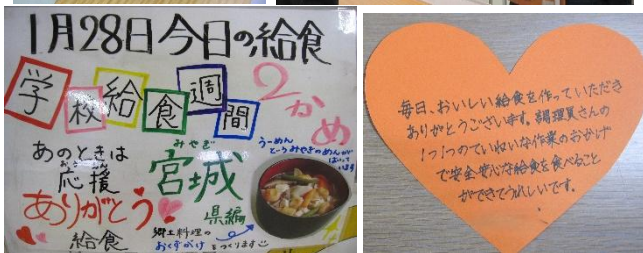 1月28日今日の給食
学校給食週間
2かめ
あのときは
応援
ありがとう
給食
みやぎ
宮城
県編
うーめん
というみやぎのめんが
はいって
います
郷土料理の
おくずがけをつくります
毎日、おいしい給食を作っていただき
ありがとうございます。調理員さんの
1つ1つのていねいな作業のおかげ
で安全安心な給食を食べること
ができてうれしいです。